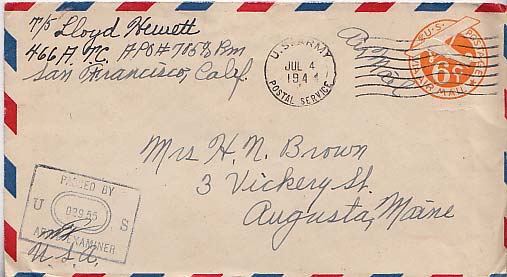 T/5 Lloyd Hewett
466 A.T.C. APO# 7858, Pm
San Francisco, Calif.
U.S. ARMY
JUL 4
194
POSTAL SERVICE
Air Mail
U.S. POSTAGE
6¢
VIA AIR MAIL
Mrs H. N. Brown
3 Vickery St.
Augusta, Maine
PASSED BY
U S
ARMY EXAMINER
U.S.A.